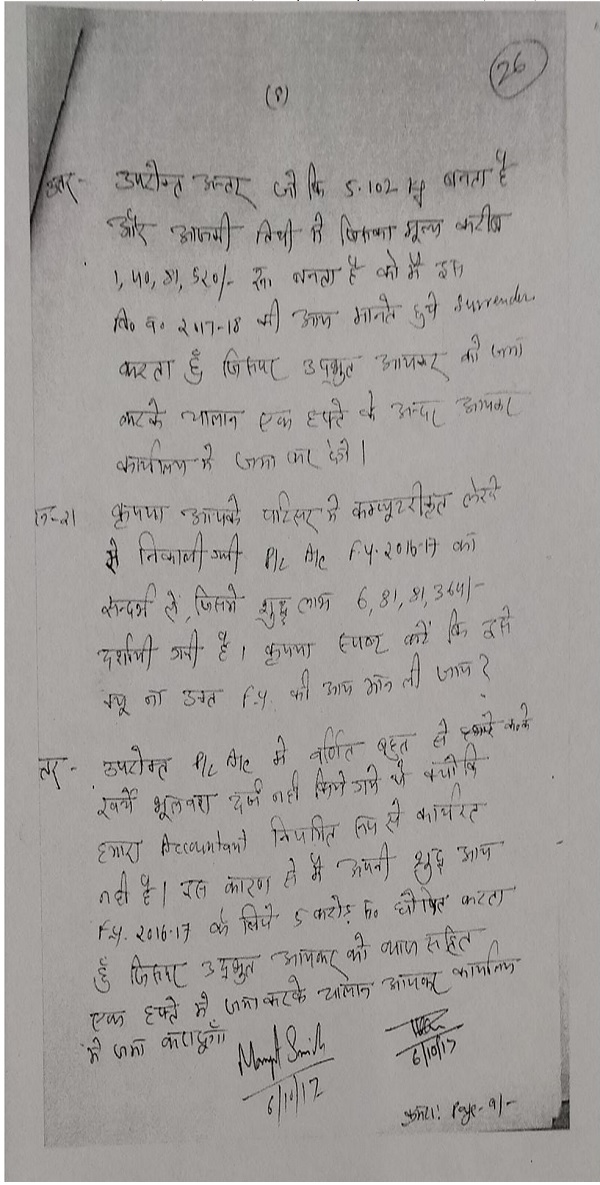 26
(8)
उत्तर- उपरोक्त अन्तर जो कि 5.102 kg बनता है
और आजकी तिथी में जिसका मूल्य करीब
1,40,81,520/- रू0 बनता है को मैं इस
वि0 व0 2017-18 की आय मानते हुये Surrender
करता हूँ जिसपर उद्भुत आयकर को जमा
करके चालान एक हफ्ते के अन्दर आयकर
कार्यालय में जमा कर देंगे।
प्र-21 कृपया आपके परिसर में कम्प्यूटरीकृत लेखे
से निकाली गयी P/L A/c F.Y. 2016-17 का
सन्दर्भ लें, जिसमें शुद्ध लाभ 6,81,81,364/-
दर्शायी गयी है। कृपया स्पष्ट करें कि इसे
क्यू ना उक्त F.Y. की आय मान ली जाय?
उत्तर- उपरोक्त P/L A/c में वर्णित बहुत से कच्चे
खर्चे भूलवश दर्ज नही किये गये थे क्योंकि
हमारा Accountant नियमित रूप से कार्यरत
नही है। इस कारण से मैं अपनी शुद्ध आय
F.Y. 2016-17 के लिये 5 करोड़ रू0 घोषित करता
हूँ जिसपर उद्भुत आयकर को व्याज सहित
एक हफ्ते में जमा करके चालान आयकर कार्यालय
में जमा करादूँगा।
6/10/17
6/10/17
क्रमशः Page-9/-